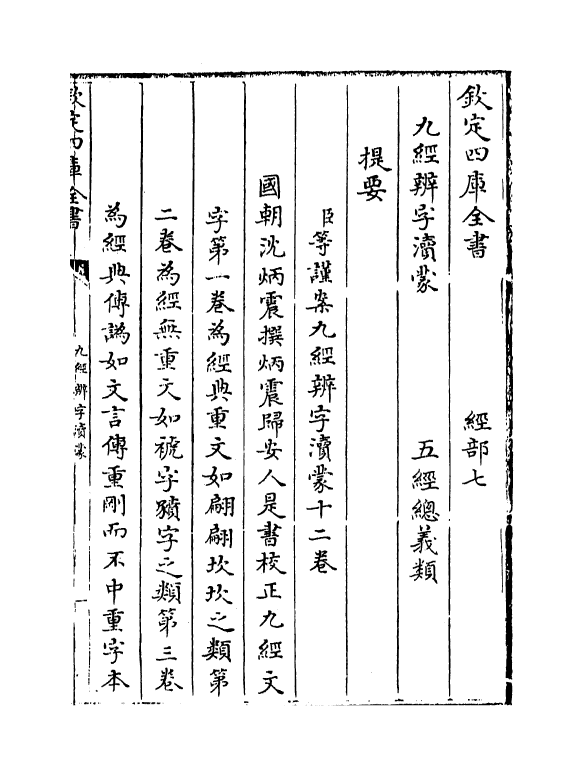 欽定四庫全書　經部七
九經辨字瀆蒙　五經總義類
提要
臣等謹案九經辨字瀆蒙十二卷
國朝沈炳震撰炳震歸安人是書校正九經文
字第一卷為經典重文如翩翩坎坎之類第
二卷為經無重文如褫字豶字之類第三卷
為經典傳譌如文言傳重剛而不中重字本
欽定四庫全書
九經辨字瀆蒙
一